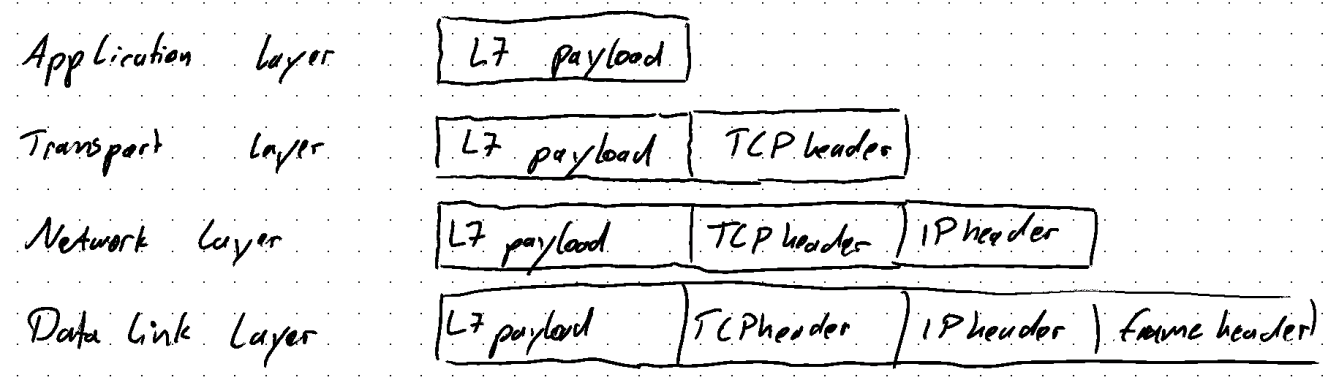 Application Layer L7 payload
Transport Layer L7 payload TCP header
Network Layer L7 payload TCP header IP header
Data Link Layer L7 payload TCP header IP header frame header